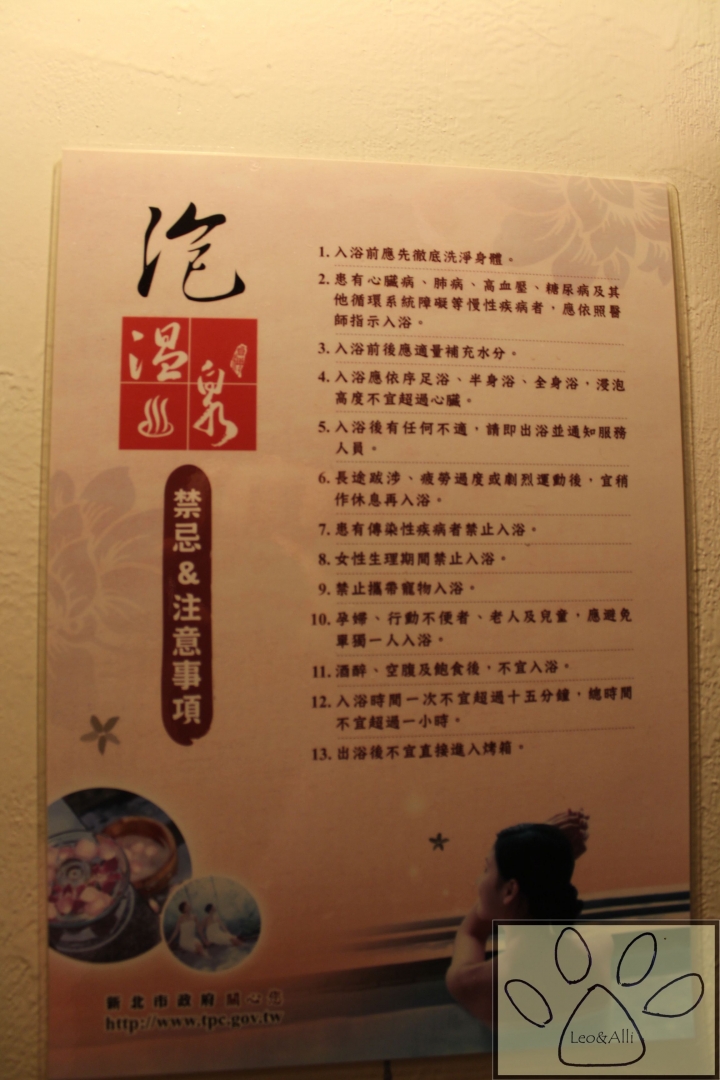 泡
溫泉
禁忌&注意事項
1. 入浴前應先徹底洗淨身體。
2. 患有心臟病、肺病、高血壓、糖尿病及其
他循環系統障礙等慢性疾病者，應依照醫
師指示入浴。
3. 入浴前後應適量補充水分。
4. 入浴應依序足浴、半身浴、全身浴，浸泡
高度不宜超過心臟。
5. 入浴後有任何不適，請即出浴並通知服務
人員。
6. 長途跋涉、疲勞過度或劇烈運動後，宜稍
作休息再入浴。
7. 患有傳染性疾病者禁止入浴。
8. 女性生理期間禁止入浴。
9. 禁止攜帶寵物入浴。
10. 孕婦、行動不便者、老人及兒童，應避免
單獨一人入浴。
11. 酒醉、空腹及飽食後，不宜入浴。
12. 入浴時間一次不宜超過十五分鐘，總時間
不宜超過一小時。
13. 出浴後不宜直接進入烤箱。
新北市政府 關心您
http://www.tpc.gov.tw
Leo&Alli